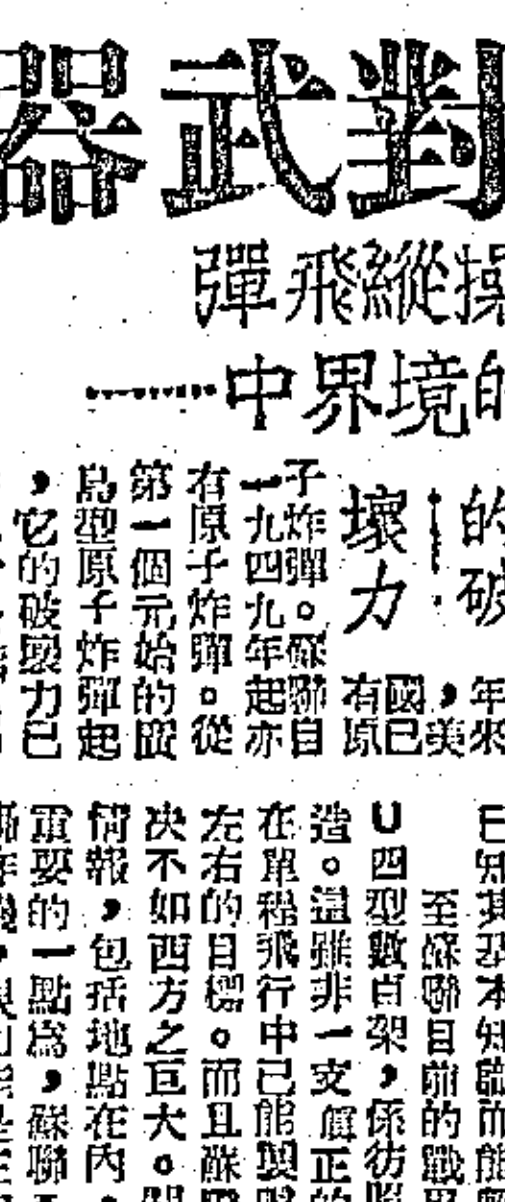 對武器
操縱飛彈
的境界中………
的破
壞力
年來
，美
國已
有原
子炸彈。蘇聯自
一九四九年起亦
有原子炸彈。從
第一個元始的廣
島型原子炸彈起
，它的破壞力已
已知其基本知識而能
至蘇聯目前的戰
U四型數百架，係仿照
造。這雖非一支眞正的
在單程飛行中已能與
左右的目標。而且蘇
决不如西方之巨大。
情報，包括地點在內，
重要的一點爲，蘇聯